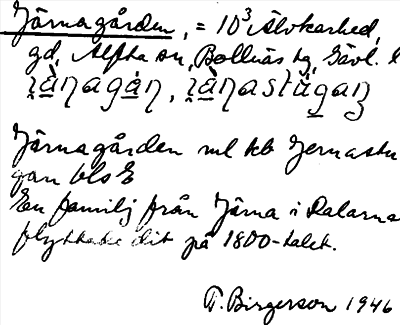 Järnagården, = 10³ Älvkarhed,
gd, Alfta sn, Bollnäs tg, Gävl. l
Järnagården enl kb Jernastu
gan bls E
En familj från Järna i Dalarna
flyttade dit på 1800-talet.
T. Birgerson 1946